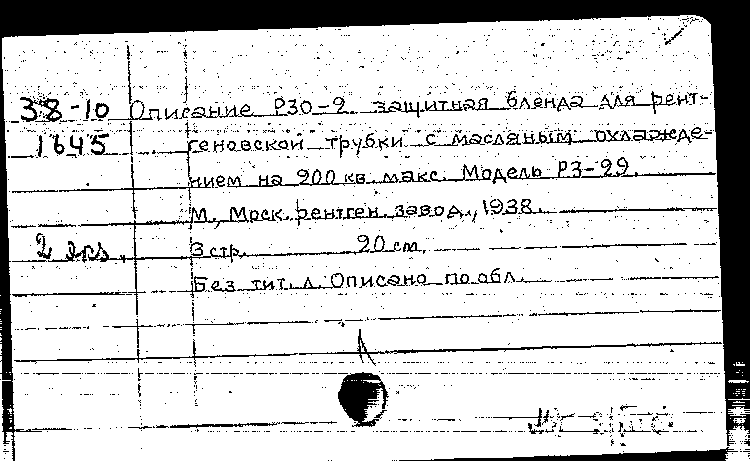 38-10 Описание РЗО-2 защитная бленда для рент-
1645 геновской трубки с масляным охлажде-
нием на 200 кв. макс. Модель РЗ-29.
М., Моск. рентген. завод, 1938.
2 экз. 3 стр. 20 см.
Без тит. л. Описано по обл.